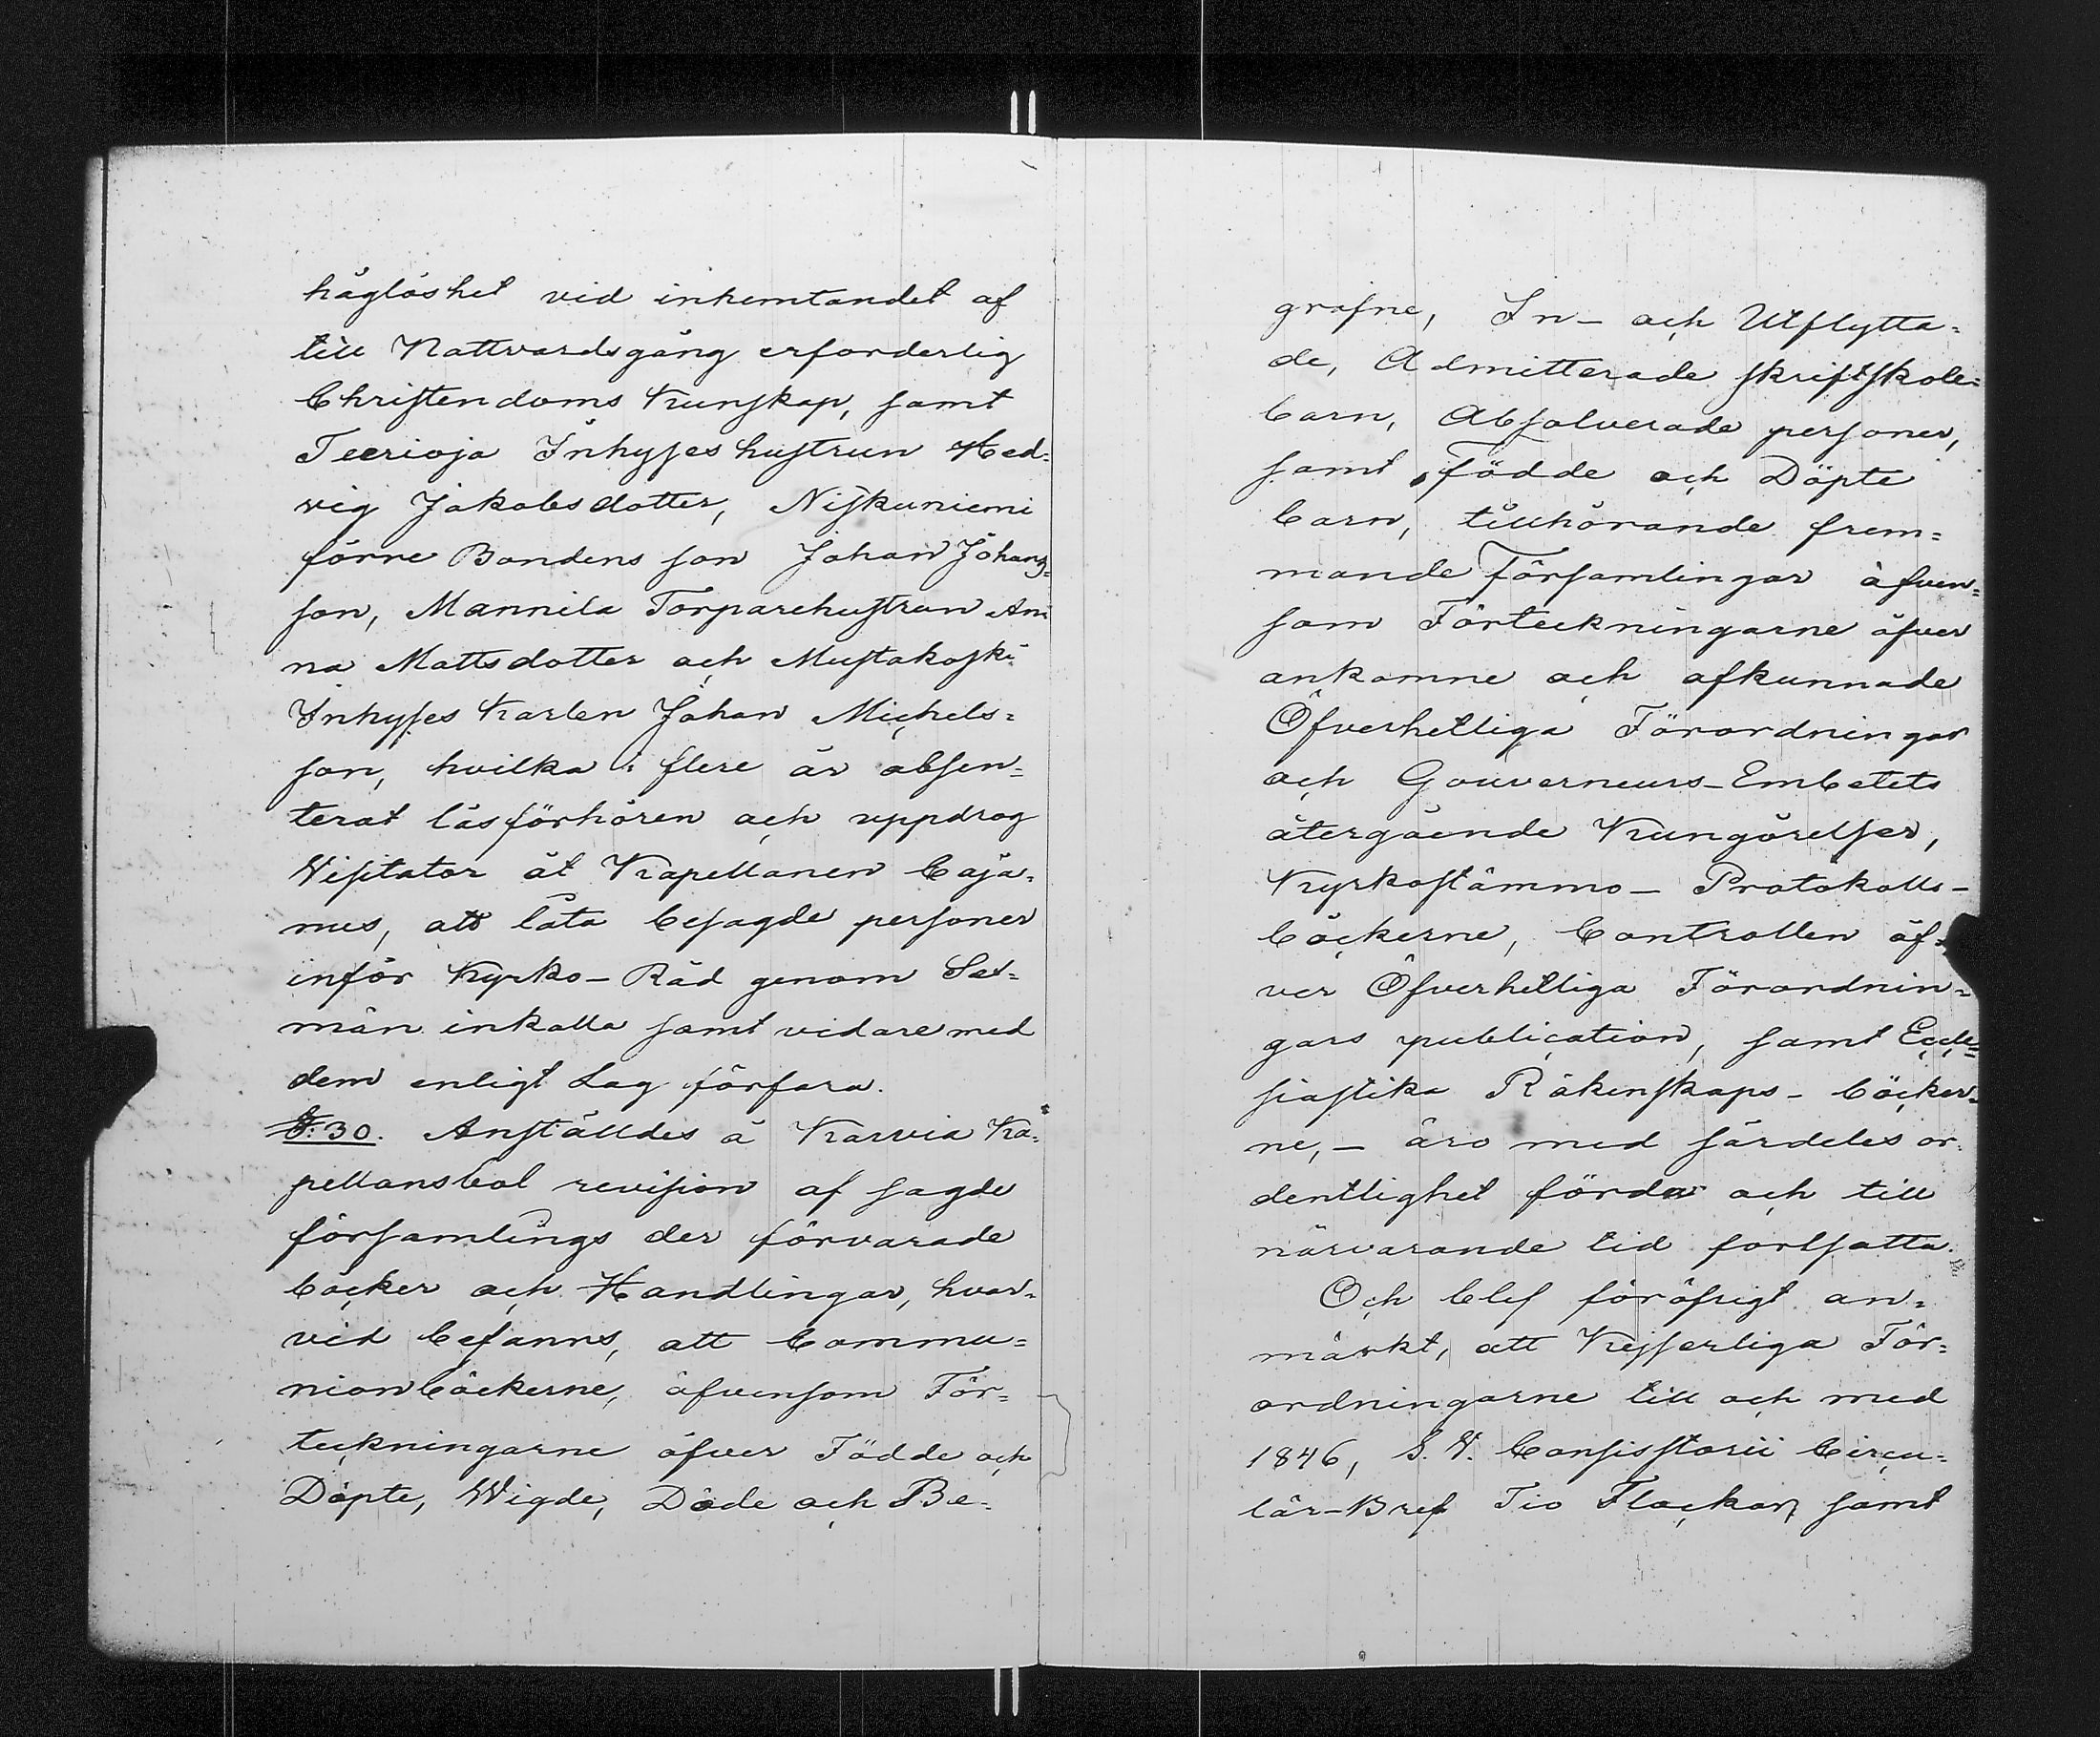 håglöshet vid inhemtandet af
till Nattvardsgång erforderlig
Christendoms Kunskap, samt
Teerioja Inhyses hustrun Hed=
vig Jakobsdotter, Niskuniemi
förre Bondens son Johan Johans=
son, Mannila Torparehustrun An=
na Mattsdotter och Mustakoski
Inhyses Karlen Johan Michels=
son, hvilka i flere år absen=
terat läsförhören och uppdrog
Visitator åt Kapellanen Caja=
nus, att låta besagde personer
inför Kyrko-Råd genom Sex=
män inkalla samt vidare med
dem enligt Lag förfara.
§: 30. Anställdes å Karvia Ka=
pellansbol revision af sagde
församlings der förvarade
böcker och Handlingar, hvar=
vid befanns, att Commu=
nionböckerne, äfvensom För=
teckningarne öfver Födde och
Döpte, Wigde, Döde och Be=
grafne, In- och Utflytta=
de, Admitterade skriftskole=
barn, Absolverade personer,
samt Födde och Döpte
barn, tillhörande frem=
mande Församlingar äfven=
som Förteckningarne öfver
ankomne och afkunnade
Öfverhetliga Förordningar
och Gouverneurs-Embetets
återgående Kungörelser,
Kyrkostämmo- Protokolls-
böckerne, Controllen öf=
ver Öfverhetliga Förordnin=
gars publication, samt Eccle=
siastika Räkenskaps- böcker=
ne, - äro med särdeles or=
dentlighet förda och till
närvarande tid fortsatta.
Och blef föröfrigt an=
märkt, att Kejserliga För=
ordningarne till och med
1846, S. V. Consistorii Circu=
lär-Bref Tio Flockar, samt